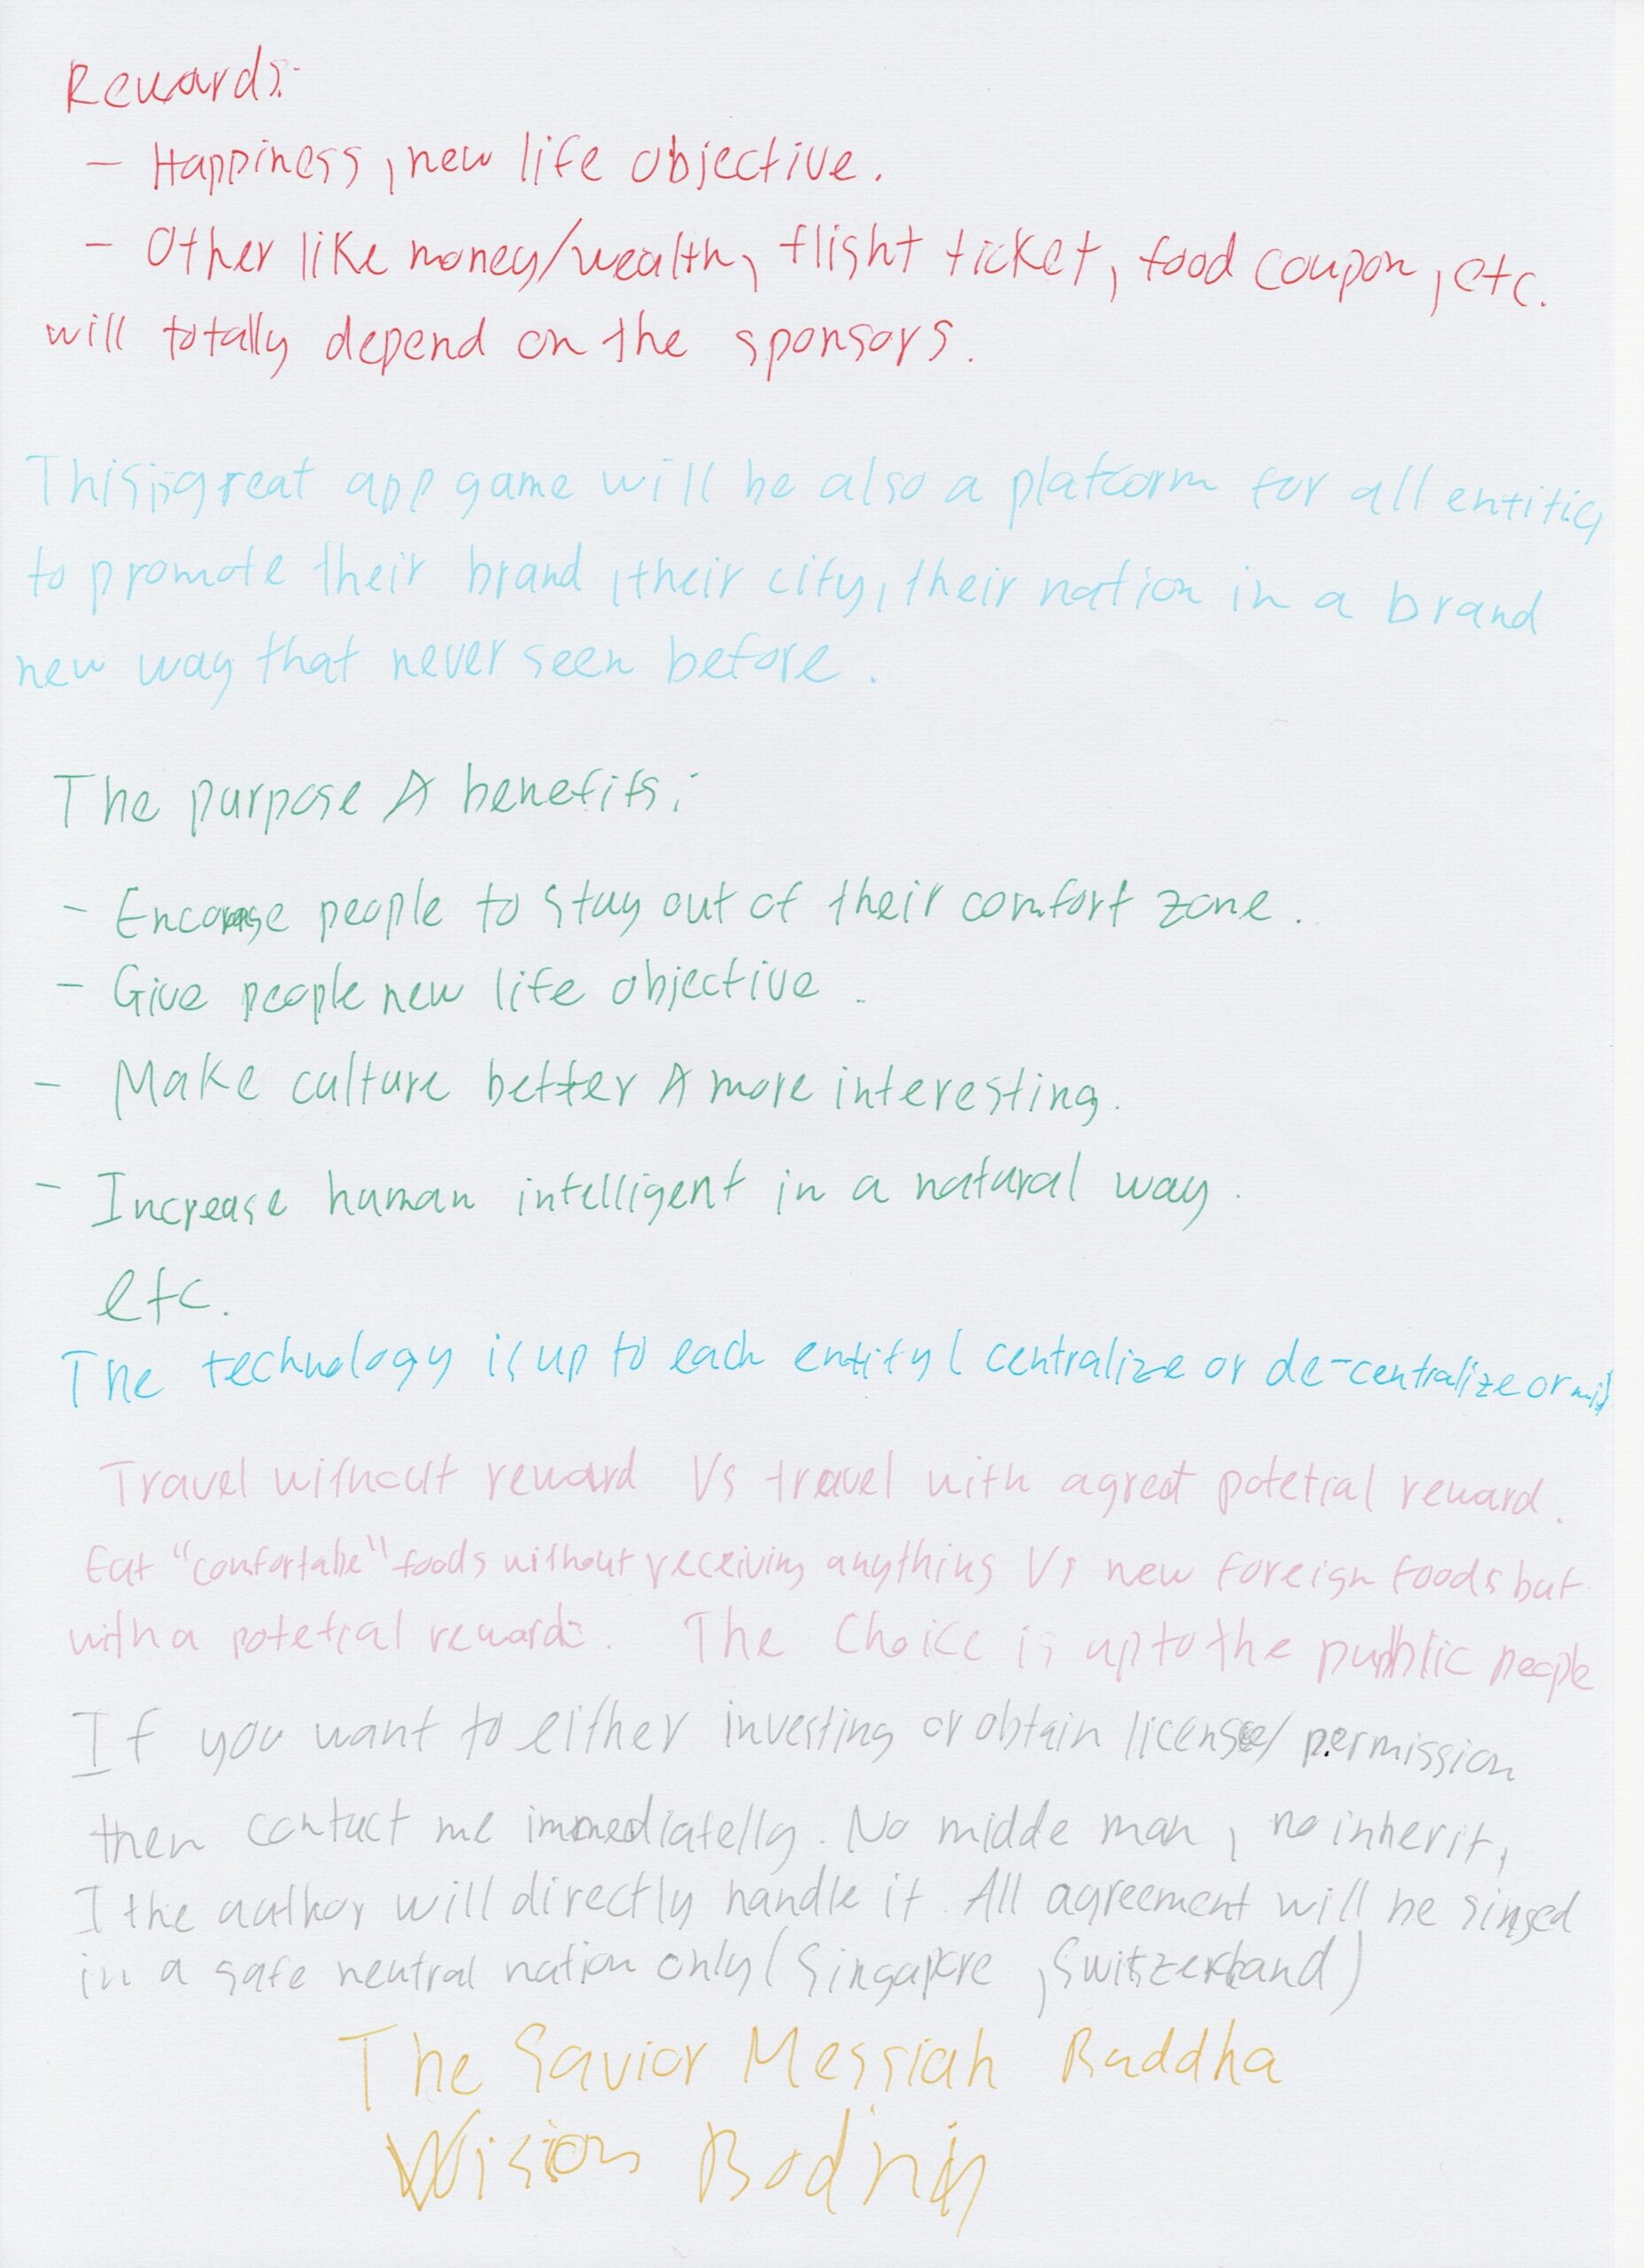 Rewards:
- Happiness, new life objective.
- Other like money/wealth, flight ticket, food coupon, etc.
will totally depend on the sponsors.
This great app game will be also a platform for all entities
to promote their brand, their city, their nation in a brand
new way that never seen before.
The purpose & benefits:
- Encourage people to stay out of their comfort zone.
- Give people new life objective.
- Make culture better & more interesting.
- Increase human intelligent in a natural way.
etc.
The technology is up to each entity ( centralize or de-centralize or mix)
Travel without reward Vs travel with a great potetial reward.
Eat "comfortable" foods without receiving anything Vs new foreign foods but
with a potetial reward. The Choice is up to the public people
If you want to either investing or obtain license/permission
then contact me immediatelly. No midde man, no inherit,
I the author will directly handle it. All agreement will be singed
in a safe neutral nation only (Singapore, Switzerland)
The Savior Messiah Buddha